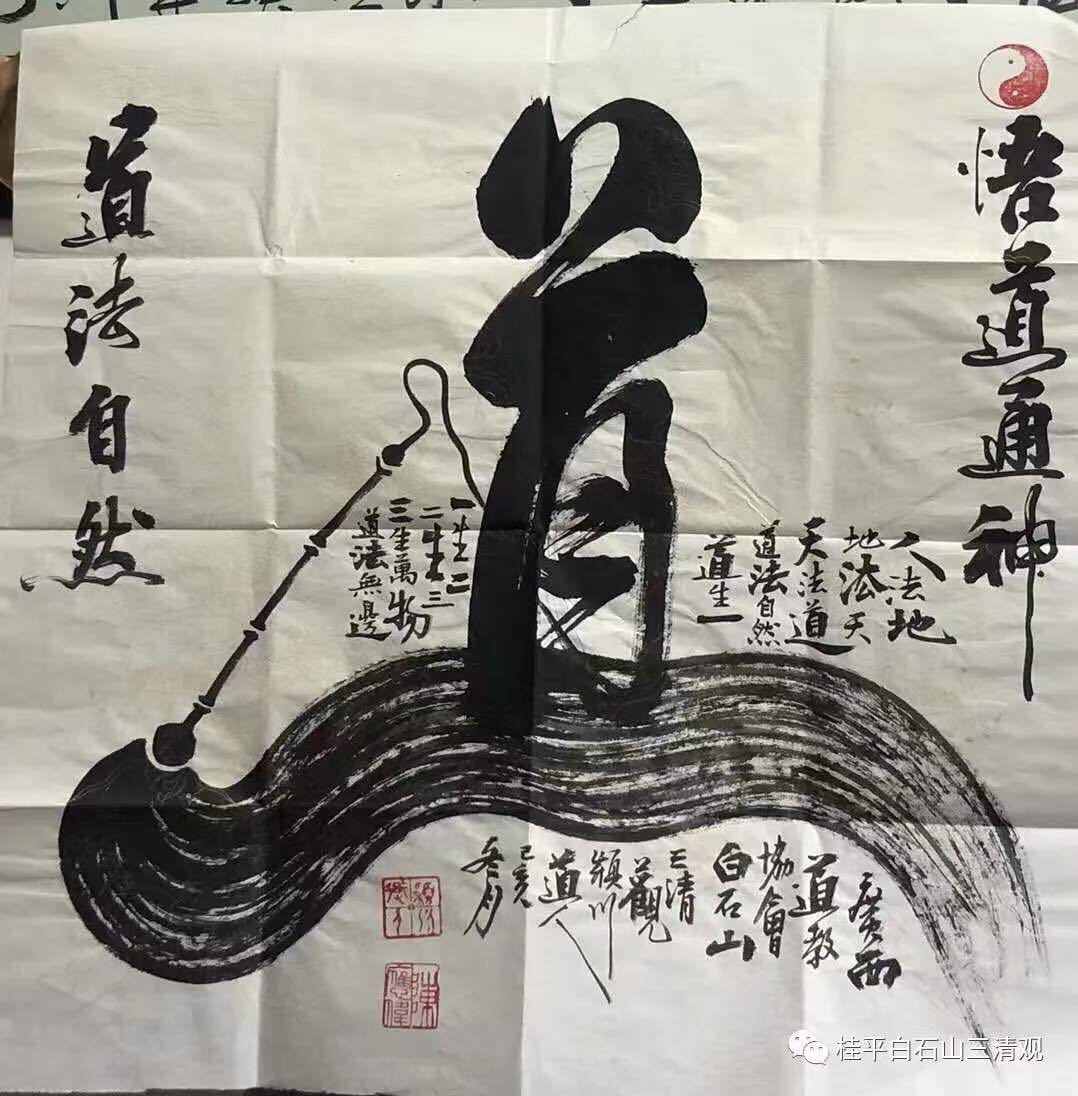 悟道通神
人法地
地法天
天法道
道法自然
道生一
道
一生二
二生三
三生萬物
道法無邊
道法自然
廣西
道教
協會
白石山
三清
觀
潁川
道人
己亥
冬月
陳
桂平白石山三清观